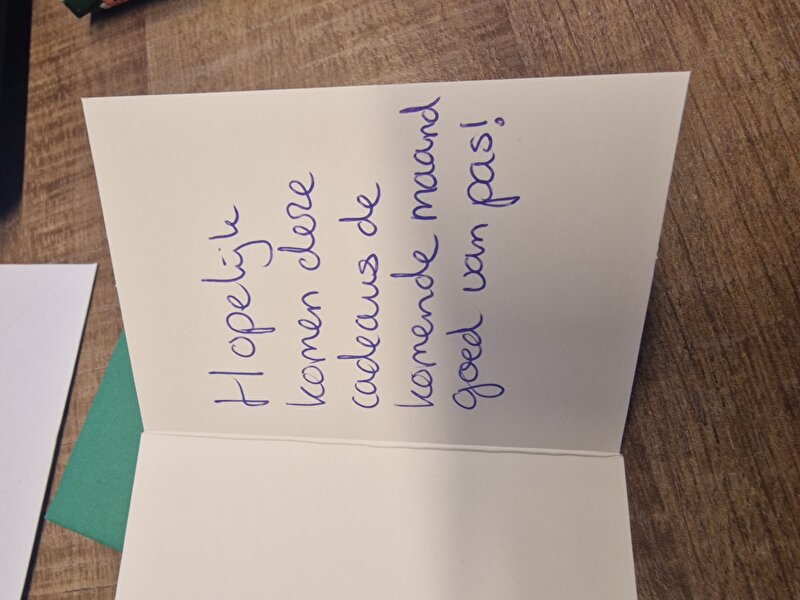 Hopelijk
komen deze
cadeaus de
komende maand
goed van pas!